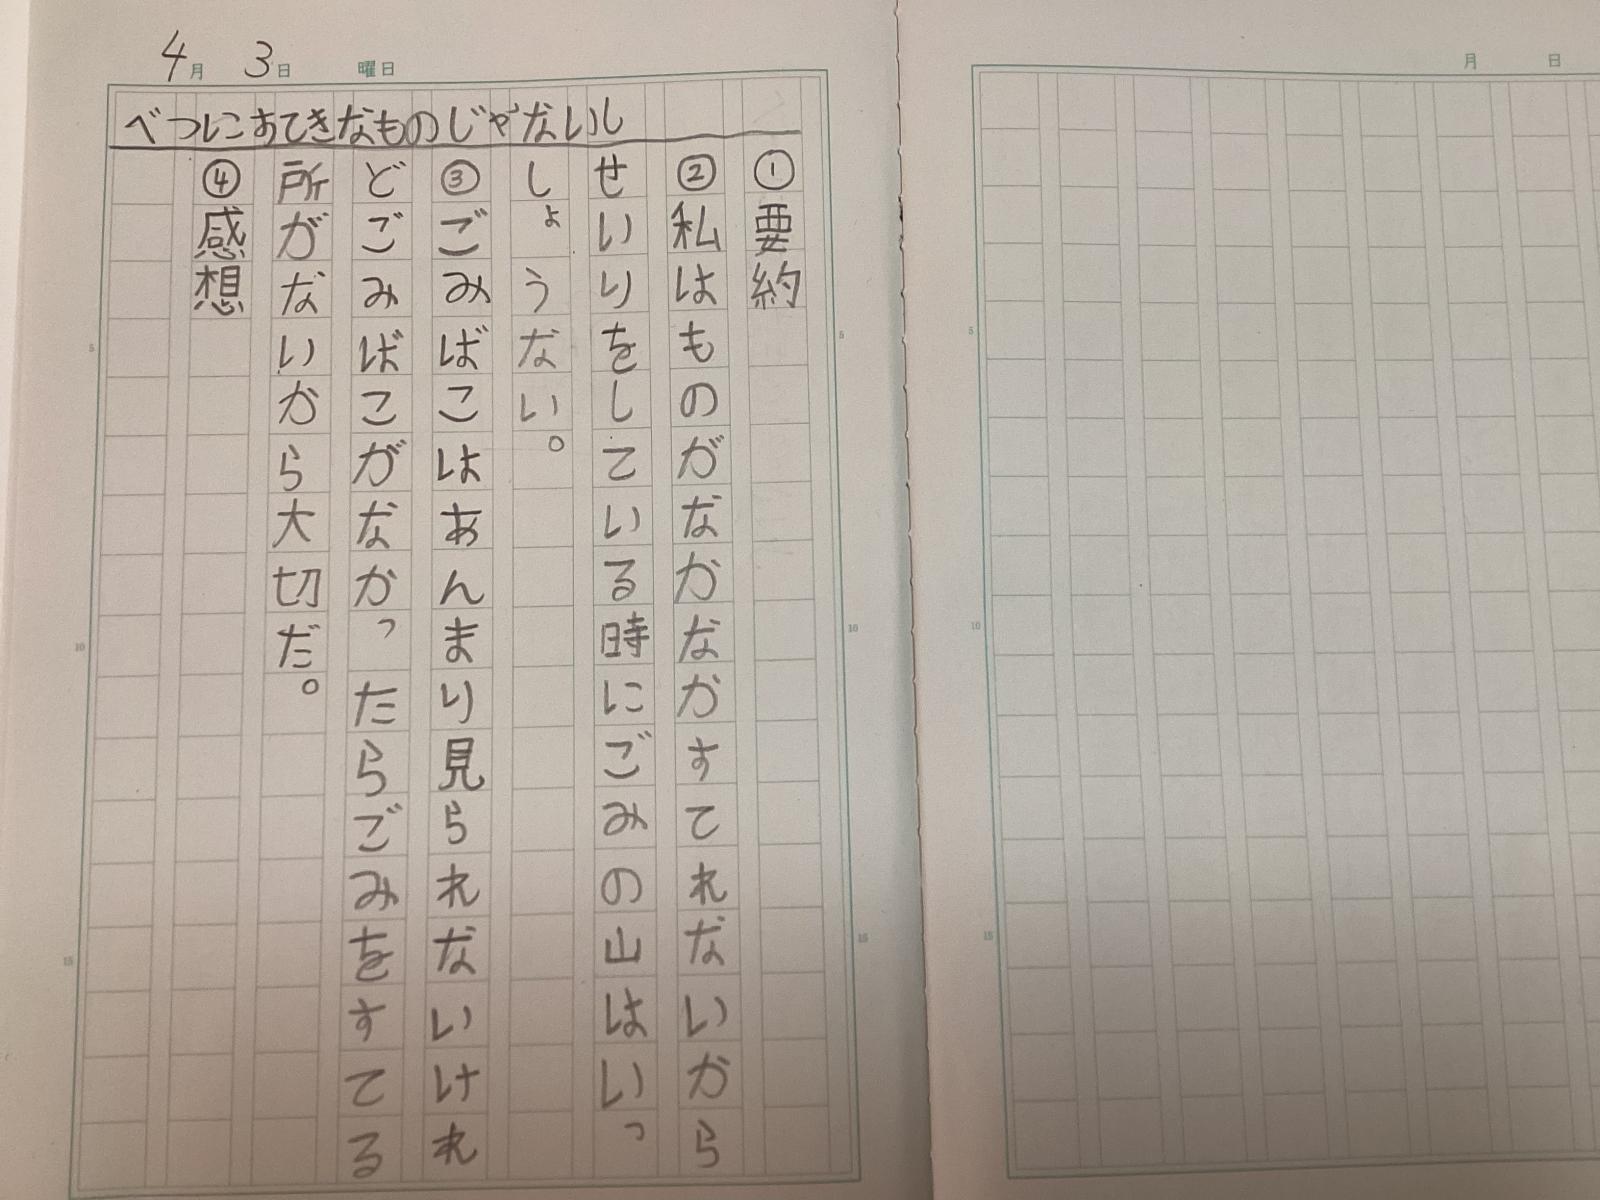 4月 3日 曜日
べつにすてきなものじゃないし
①要約
②私はものがなかなかすてれないから
せいりをしている時にごみの山はいっ
しょうない。
③ごみばこはあんまり見られないけれ
どごみばこがなかったらごみをすてる
所がないから大切だ。
④感想
5
10
15
5
10
15
月 日
5
10
15